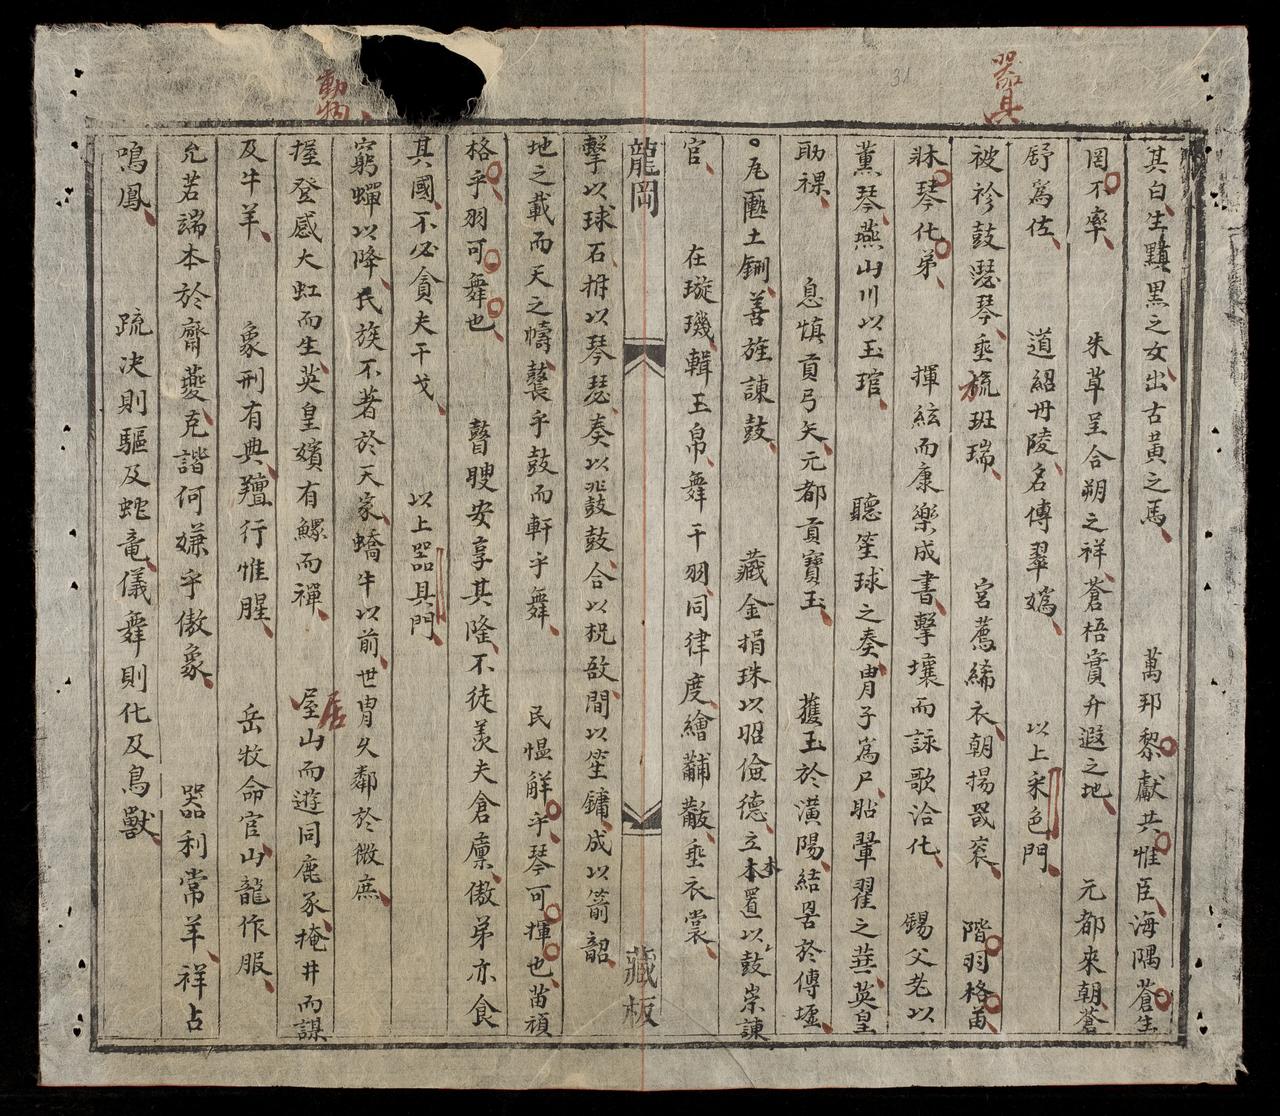 器具
其白生黰黒之女出古黄之馬　萬邦黎獻共惟臣海隅蒼生
罔不率　朱草呈合朔之祥蒼梧賞升遐之地　元都來朝蒼
舒爲佐　道紹丹陵名傳翠嬀　以上采色門
被袗鼓瑟琴垂旒班瑞　宮薦絺衣朝揚袞　階羽格苗
牀琴化弟　揮絃而康樂成書擊壤而詠歌洽化　錫父老以
薰琴燕山川以玉琯　聽笙球之奏冑子爲尸貽翬翟之英皇
助祼　息慎貢弓矢元都貢寶玉　獲玉於潢陽結罟於傅墟
瓦匭土鉶善旌諫鼓　藏金捐珠以昭儉德立木置以鼓崇諫
官　在璇璣輯玉帛舞干羽同律度繪黼黻垂衣裳
龍岡
藏板
擊以球石拊以琴瑟奏以鼗鼓合以柷敔間以笙鏞成以箾韶
地之載而天之幬鼚乎鼓而軒乎舞　民慍解乎琴可揮也苗頑
格乎羽可舞也　瞽瞍安享其隆不徒羡夫倉廩傲弟亦食
其國不必貪夫干戈　以上器具門
動物
窮蟬以降氏族不著於天家蟜牛以前世冑久鄰於微庶
握登感大虹而生英皇嬪有鰥而禪　居
屋山而遊同鹿豕掩井而謀
及牛羊　象刑有典羶行惟腥　岳牧命官山龍作服
允若端本於齋夔克諧何嫌乎傲象　器利常羊祥占
鳴鳳　疏決則驅及蛇竜儀舞則化及鳥獸